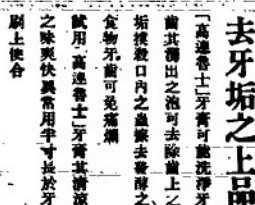 去牙垢之上品
「高連魯士」牙膏可能洗淨牙
齒其湧出之泡可去除齒上之
垢撲殺口內之蟲驅去發酵之
食物牙齒可免痛爛
試用「高連魯士」牙膏其清涼
之味爽快異常用半寸長於牙
刷上便合